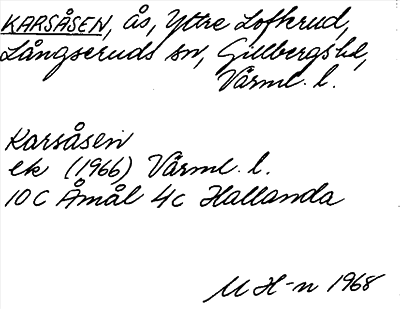 KARSÅSEN, ås, Yttre Lofterud,
Långseruds sn, Gillbergs hd,
Värml. l.
Karsåsen
ek (1966) Värml. l.
10C Åmål 4c Hallanda
M H-n 1968